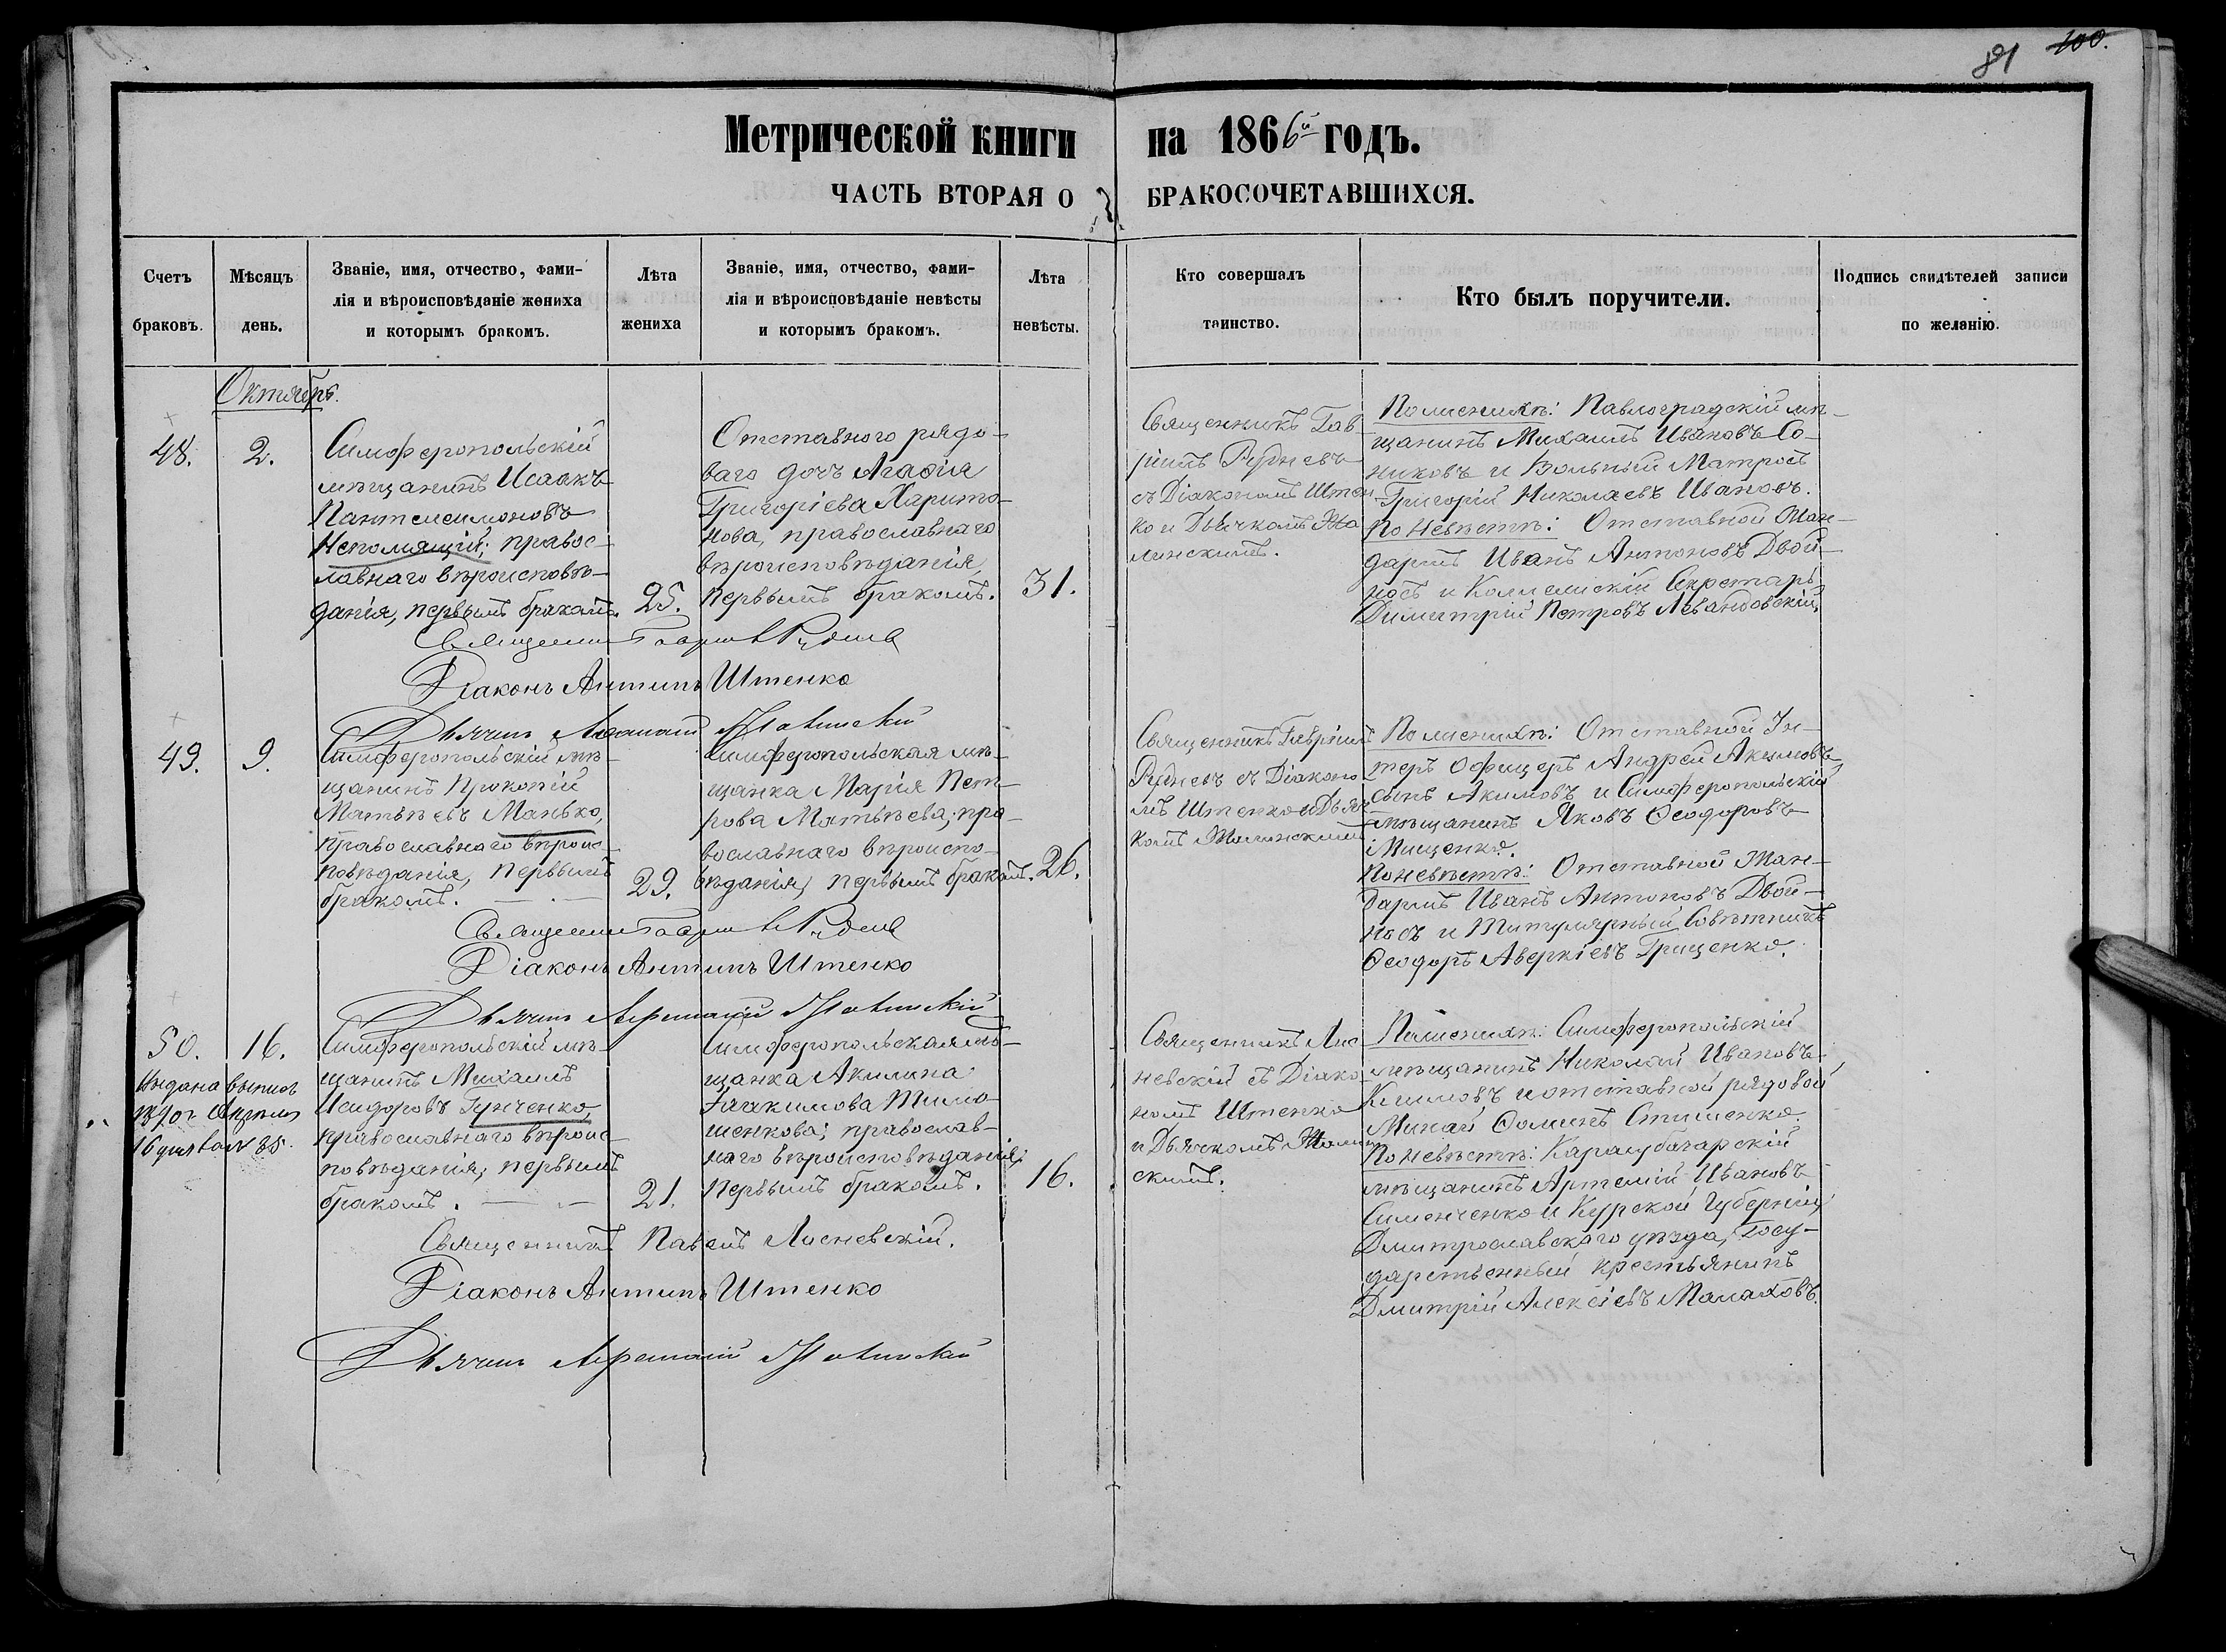 81 100.
Метрической книги на 1866й годъ.
ЧАСТЬ ВТОРАЯ О БРАКОСОЧЕТАВШИХСЯ.
Счетъ браковъ.
Мѣсяцъ день.
Званіе, имя, отчество, фами-
лія и вѣроисповѣданіе жениха
и которымъ бракомъ.
Лѣта жениха
Званіе, имя, отчество, фами-
лія и вѣроисповѣданіе невѣсты
и которымъ бракомъ.
Лѣта невѣсты.
Кто совершалъ таинство.
Кто былъ поручители.
Подпись свидѣтелей записи
по желанію.
Октябрь.
48.
2.
Симферопольскій
мѣщанинъ Исаакъ
Пантелеимоновъ
Непомящій; правос-
лавнаго вѣроисповѣ-
данія, первымъ бракомъ.
25.
Отставного рядо-
ваго дочь Агафія
Григоріева Харито-
нова, православнаго
вѣроисповѣданія,
первымъ бракомъ.
31.
Священникъ Гав
ріилъ Рудневъ
съ Діакономъ Штен
ко и Дьячкомъ
линскимъ.
По женихѣ: Павлоградскій мѣ-
щанинъ Михаилъ Ивановъ Со-
никовъ и Вольный Матросъ
Григорій Николаевъ Ивановъ.
По невѣстѣ: Отставной Жан-
дармъ Иванъ Антоновъ Двой-
носъ и Коллежскій Секретарь
Димитрій Петровъ Левандовскій.
Священникъ Гавріилъ Рудневъ
Діаконъ Антипъ Штенко
Дьячекъ
49.
9.
Симферопольскій мѣ-
щанинъ Прокопій
Матвѣевъ Манько,
православнаго вѣроис-
повѣданія, первымъ
бракомъ.
29.
Симферопольская мѣ-
щанка Марія Пет-
рова Матвѣева; пра-
вославнаго вѣроиспо-
вѣданія, первымъ бракомъ.
26.
Священникъ Гавріилъ
Рудневъ съ Діаконо
мъ Штенко и Дьяч
комъ
По женихѣ: Отставной Ун-
теръ Офицеръ Андрей Акимовъ
сынъ Акимовъ и Симферопольскій
мѣщанинъ Яковъ Ѳеодоровъ
Мищенко.
По невѣстѣ: Отставной Жан-
дармъ Иванъ Антоновъ Двой-
носъ и Титулярный Совѣтникъ
Ѳеодоръ Аверкіевъ Грищенко.
Священникъ Гавріилъ Рудневъ
Діаконъ Антипъ Штенко
Дьячекъ
50.
16.
Выдана выпись
1890 г. Апрѣля
16 дня за № 35.
Симферопольскій мѣ-
щанинъ Михаилъ
Исидоровъ Гунченко,
православнаго вѣроис-
повѣданія; первымъ
бракомъ.
21.
Симферопольская мѣ-
щанка Акилина
Іоакимова Тимо-
шенкова; православ-
наго вѣроисповѣданія;
первымъ бракомъ.
16.
Священникъ Лис
невскій съ Діако
номъ Штенко
и Дьячкомъ
скимъ.
По женихѣ: Симферопольскій
мѣщанинъ Николай Ивановъ
Климовъ и отставной рядовой
Минай Ѳоминъ Стишенко.
По невѣстѣ: Карасубазарскій
мѣщанинъ Артемій Ивановъ
Симонченко и Курской Губерніи,
Дмитрославскаго уѣзда, Госу-
дарственный крестьянинъ
Дмитрій Алексіевъ Малаховъ.
Священникъ Павелъ Лисневскій.
Діаконъ Антипъ Штенко
Дьячекъ